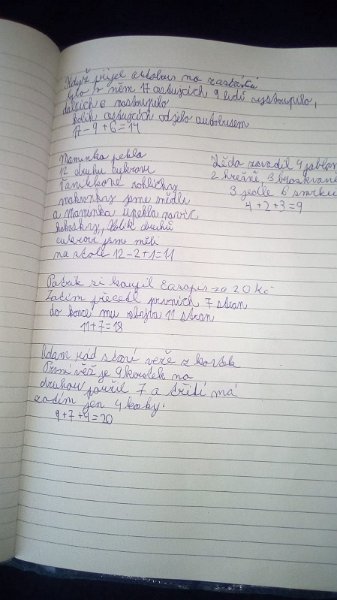 Když přijel autobus na zastávku
bylo v něm 17 cestujících 9 lidí vystoupilo,
dalších 6 nastoupilo
kolik cestujících odjelo autobusem
17 - 9 + 6 = 14
Maminka pekla
12 druhů cukroví
vanilkové rohlíčky
a maminka upekla navíc
kokosky, kolik druhů
cukroví jsme měli
na stole 12 - 2 + 1 = 11
Děda zasadil 4 jabloně
2 3
3 6
4 + 2 + 3 = 9
si koupil časopis za 20 Kč
Zatím přečetl prvních 7 stran
do konce mu zbývá 11 stran
11 + 7 = 18
Adam rád staví věže z kostek
věž je 9 kostek na
druhou použil 7 a třetí má
zatím jen 4 kostky.
9 + 7 + 4 = 20